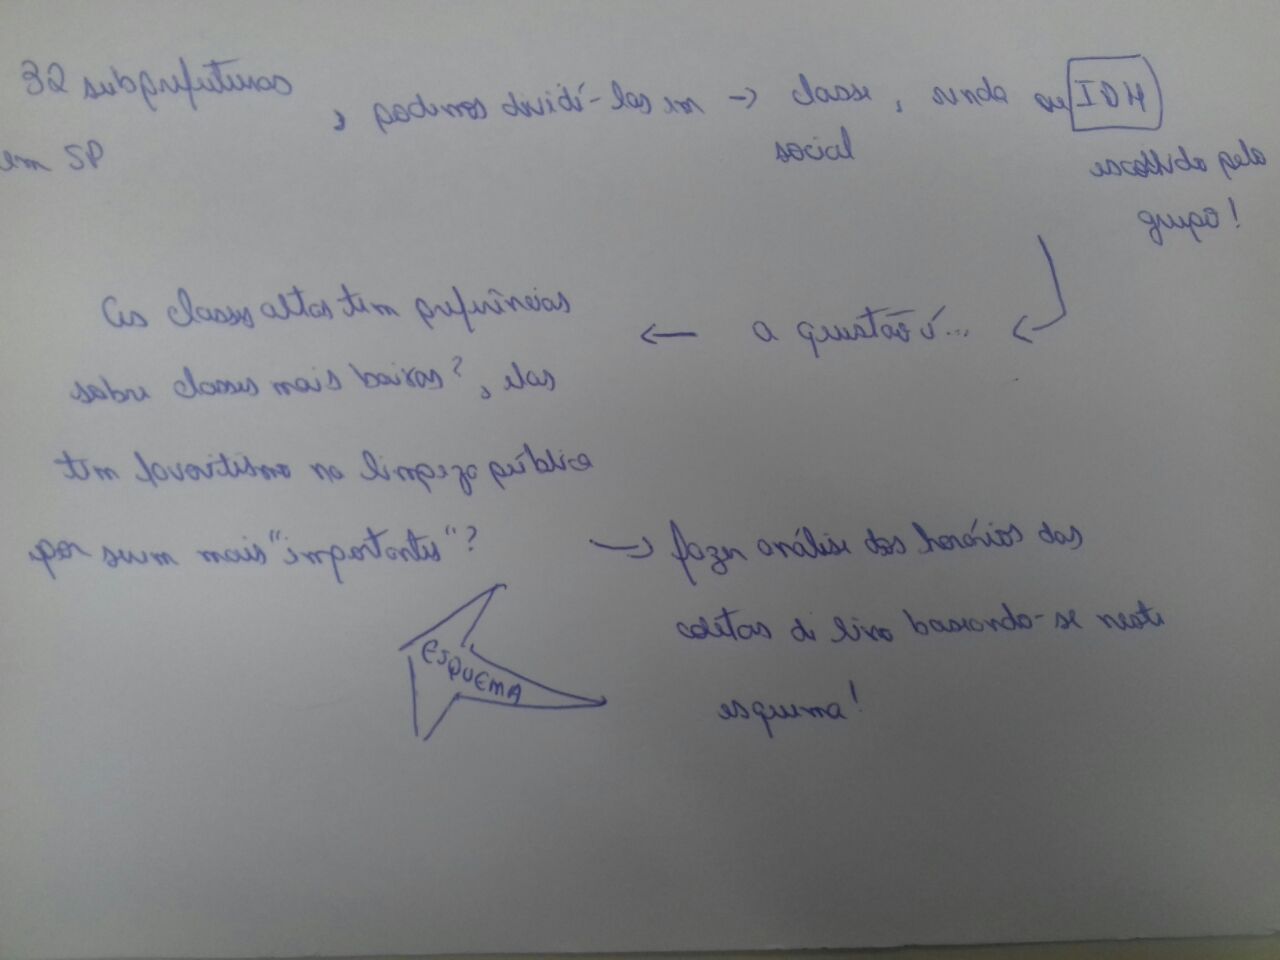 32 subprefeituras
em SP
, podemos dividí-las em → classe, renda ou IDH
social
escolhido pelo
grupo!
a questão é...
As classes altas tem preferências
sobre classes mais baixas?, elas
têm favoritismo na limpeza pública
por serem mais "importantes"?
→ fazer análise dos horários das
coletas de lixo baseando-se neste
esquema!
ESQUEMA